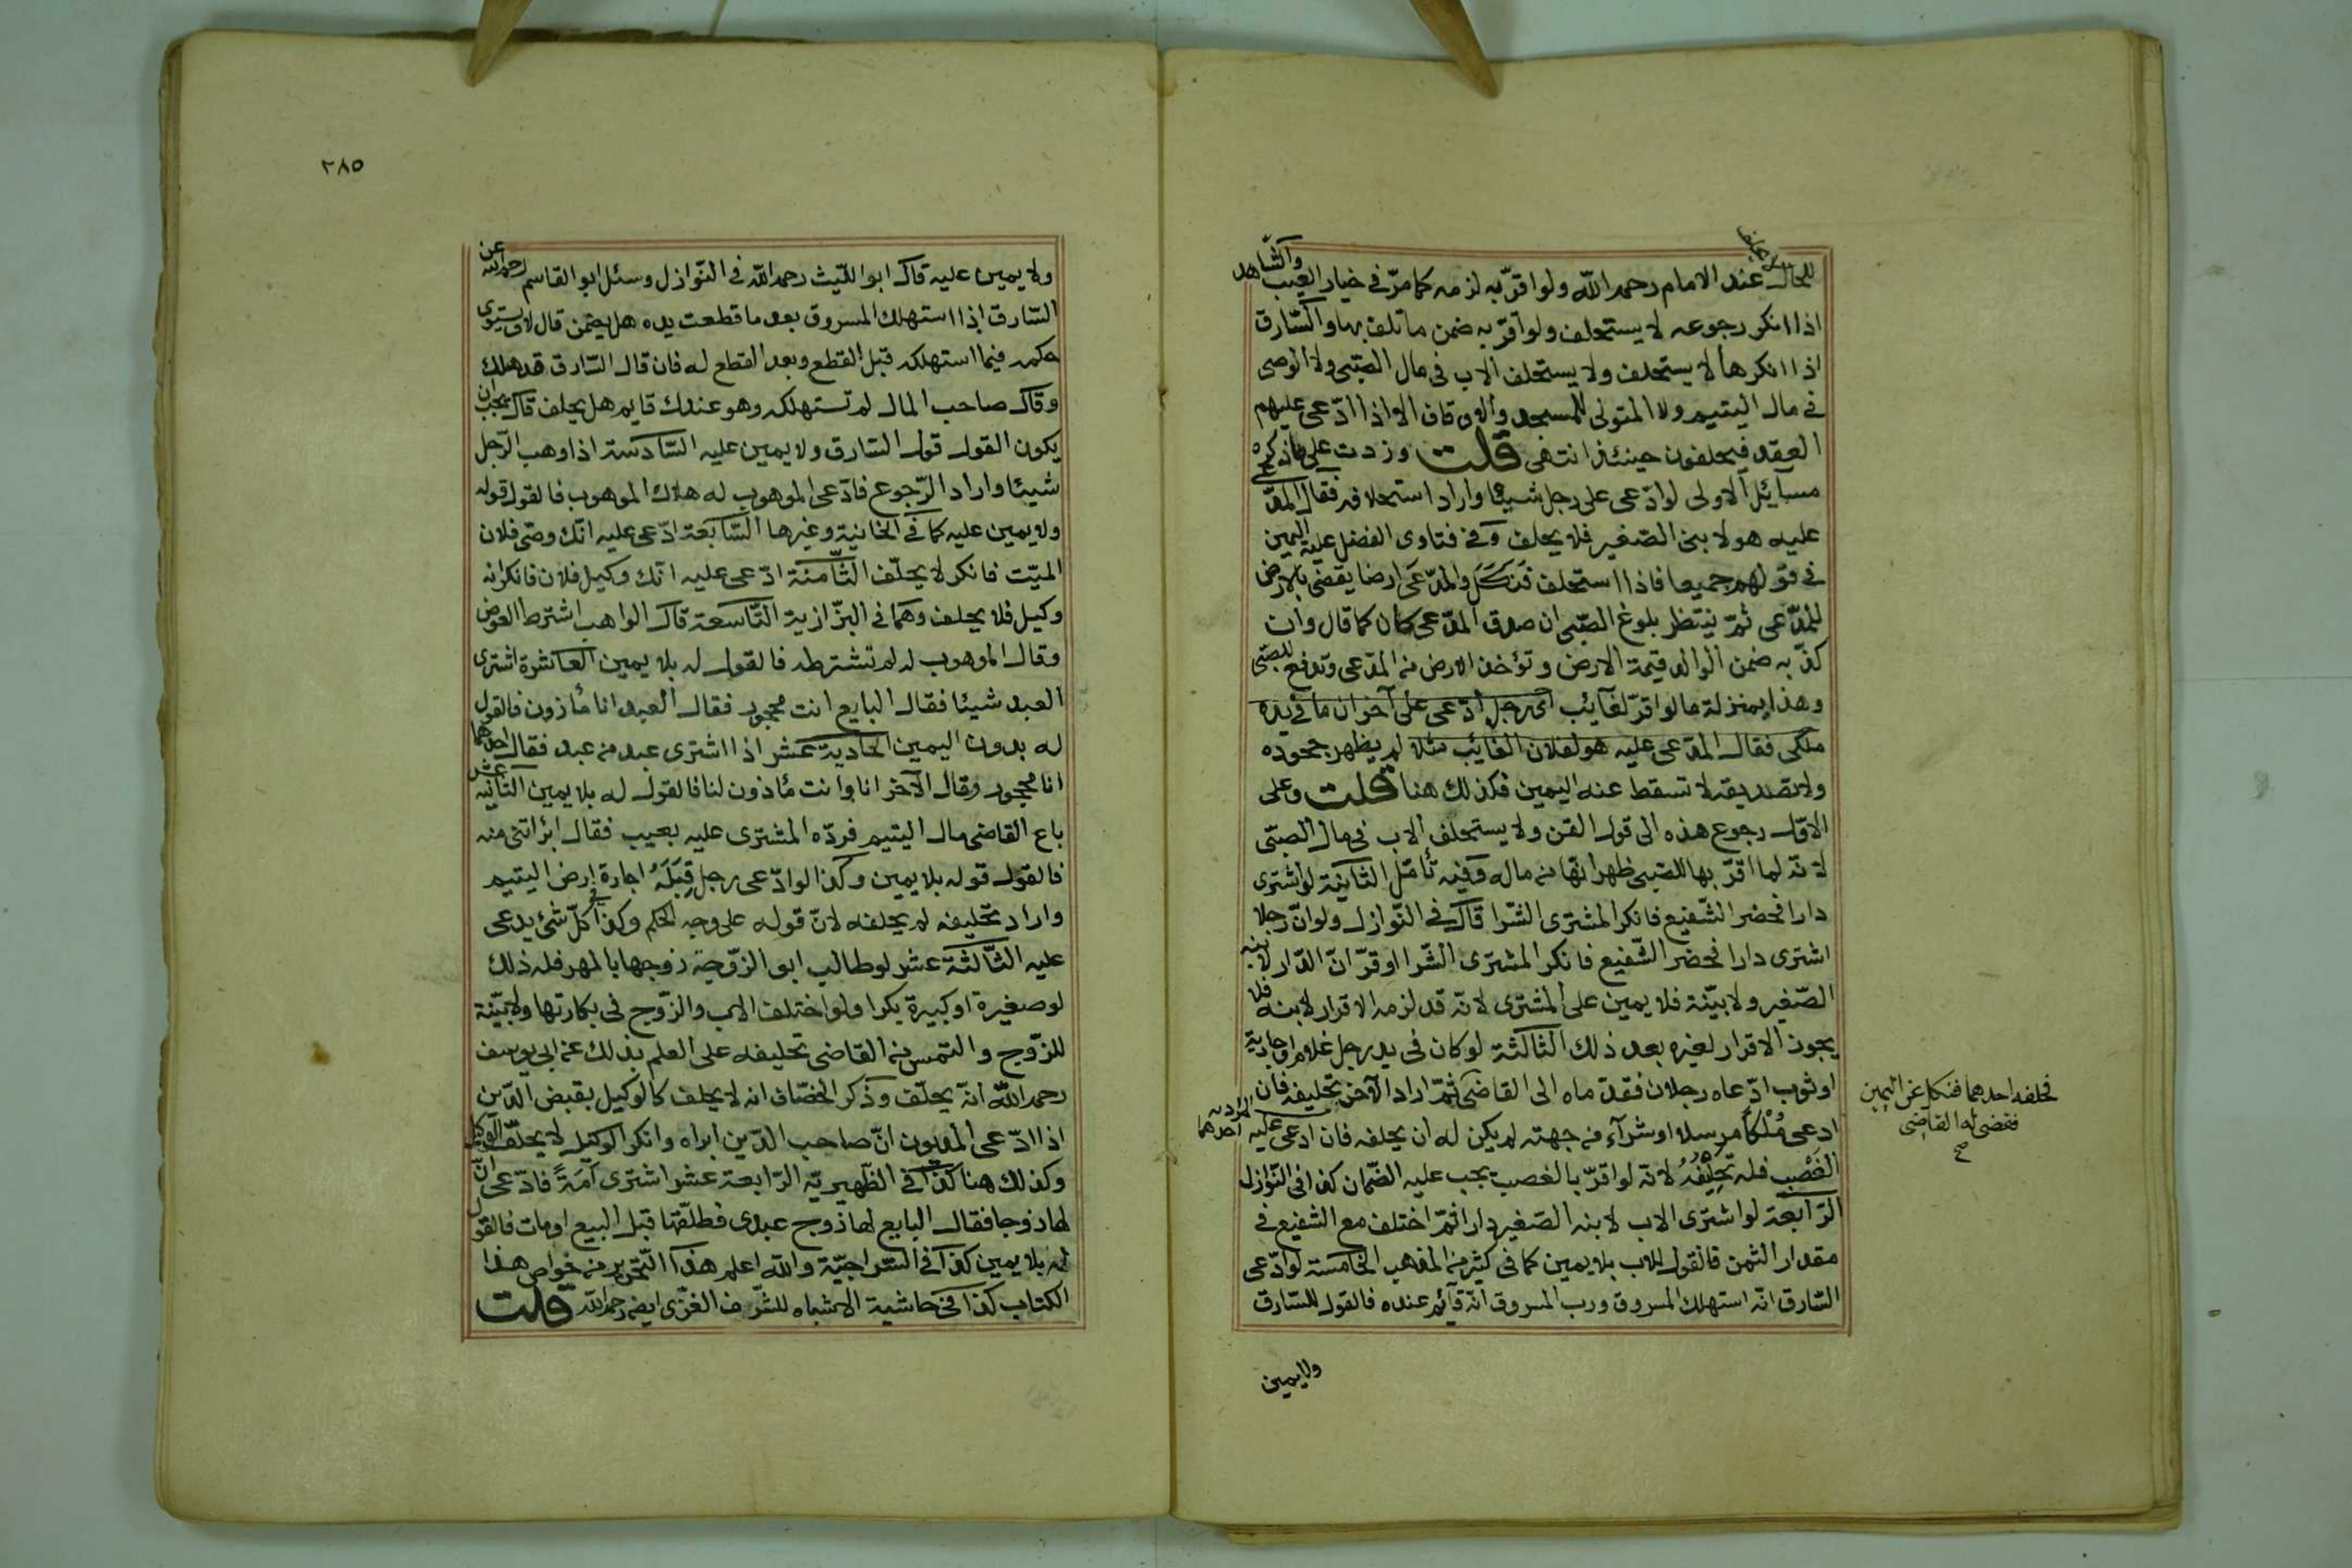 للحال لا يحلف عند الامام رحمه الله ولو اقرّ به لزمه كما مرّ في خيار العيب والشّاهد
اذا انكر رجوعه لا يستحلف ولو اقرّ به ضمن ما تلف بها والسّارق
اذا انكرها لا يستحلف ولا يستحلف الاب في مال الصّبي ولا الوصي
في مال اليتيم ولا المتولى للمسجد والاوقاف الا اذا ادّعى عليهم
العقد فيحلفون حينئذ انتهى قلت وزدت على ما ذكره
مسائل الاولى لو ادّعى على رجل شيئا واراد استحلافه فقال المدّعى
عليه هو لابني الصّغير فلا يحلف وفي فتاوى الفضل عليه اليمين
في قولهم جميعا فاذا استحلف فنكل والمدّعى ارضا يقضى بالارض
للمدّعى ثمّ ينتظر بلوغ الصّبي ان صدق المدّعى كان كما قال وان
كذّبه ضمن الوالد قيمة الارض وتؤخذ الارض من المدعى وتدفع للصّبي
وهذا بمنزلة ما لو اقرّ لغايب اى رجل ادّعى على آخر ان ما في يده
ملكى فقال المدّعى عليه هو لفلان الغائب مثلا لم يظهر جحوده
ولا تصديقه لا تسقط عنه اليمين فكذلك هنا قلت وعلى
الاوّل رجوع هذه الى قول القن ولا يستحلف الاب في مال الصبّى
لانّه لما اقرّ بها للصبى ظهر انّها من ماله وفيه تأمّل الثانية لو اشترى
دارا فحضر الشّفيع فانكر المشترى الشّرا قال في النّوازل ولو انّ رجلا
اشترى دارا فحضر الشّفيع فانكر المشترى الشّرا او اقرّ انّ الدّار لابنه
الصّغير ولا بيّنة فلا يمين على المشترى لانّه قد لزمه الاقرار لابنه فلا
يجوز الاقرار لغيره بعد ذلك الثالثة لو كان في يد رجل غلام او جارية
او ثوب ادّعاه رجلان فقدّماه الى القاضى ثمّ اراد الآخر تحليفه فان
فحلفه احدهما فنكل عن اليمين
فقضى له القاضى
صح
ادعى ملكا مرسلا او شراء من جهته لم يكن له ان يحلفه فان ادعى عليه احدهما
الغصب فله تحليفه لانّه لو اقرّ بالغصب يجب عليه الضّمان كذا في النّوازل
الرّابعة لو اشترى الاب لابنه الصّغير دارا ثمّ اختلف مع الشفيع في
مقدار الثمن فالقول للاب بلا يمين كما في كثير من المذهب الخامسة لو ادّعى
السّارق انّه استهلك المسروق ورب المسروق انّه قائم عنده فالقول للسّارق
ولا يمين
٢٨٥
ولا يمين عليه قال ابو الليّث رحمه الله في النّوازل وسئل ابو القاسم رحمه الله عن
السّارق اذا استهلك المسروق بعد ما قطعت يده هل يضمن قال لا ويستوى
حكمه فيما استهلكه قبل القطع وبعد القطع له فان قال السّارق قد هلك
وقال صاحب المال لم تستهلكه وهو عندك قايم هل يحلف قال يجب ان
يكون القول قول السّارق ولا يمين عليه السّادسة اذا وهب الرّجل
شيئا واراد الرّجوع فادّعى الموهوب له هلاك الموهوب فالقول قوله
ولا يمين عليه كما في الخانية وغيرها السّابعة ادّعى عليه انّك وصّى فلان
الميّت فانكر لا يحلّف الثّامنة ادّعى عليه انّك وكيل فلان فانكر انه
وكيل فلا يحلف وهما في البزّازية التّاسعة قال الواهب اشترط العوض
وقال الموهوب له لم تشترطه فالقول له بلا يمين العاشرة اشترى
العبد شيئا فقال البايع انت محجور فقال العبد انا مأذون فالقول
له بدون اليمين الحادية عشر اذا اشترى عبد من عبد فقال احدهما
انا محجور وقال الآخر انا وانت مأذون لنا فالقول له بلا يمين الثانية عشر
باع القاضى مال اليتيم فردّه المشترى عليه بعيب فقال ابرأتنى منه
فالقول قوله بلا يمين وكذا لو ادّعى رجل قبله اجارة ارض اليتيم
واراد تحليفه لم يحلفه لانّ قوله على وجه الحكم وكذا كلّ شئ يدعى
عليه الثّالثة عشر لو طالب ابو الزّوجة زوجها بالمهر فله ذلك
لو صغيرة او كبيرة بكرا ولو اختلف الاب والزّوج في بكارتها ولا بيّنة
للزّوج والتمس من القاضى تحليفه على العلم بذلك عن ابى يوسف
رحمه الله انّه يحلّف وذكر الخصّاف انه لا يحلف كالوكيل بقبض الدّين
اذا ادّعى المديون انّ صاحب الدّين ابراه وانكر الوكيل لا يحلّف الوكيل
وكذلك هنا كذا في الظّهيريّة الرّابعة عشر اشترى امة فادّعى انّ
لها زوجا فقال البايع لها زوج عبدى فطلّقها قبل البيع او مات فالقول
له بلا يمين كذا في السّراجيّة والله اعلم هذا التّحرير من خواص هذا
الكتاب كذا في حاشية الاشباه للشّرف الغزّى ايضا رحمه الله قلت